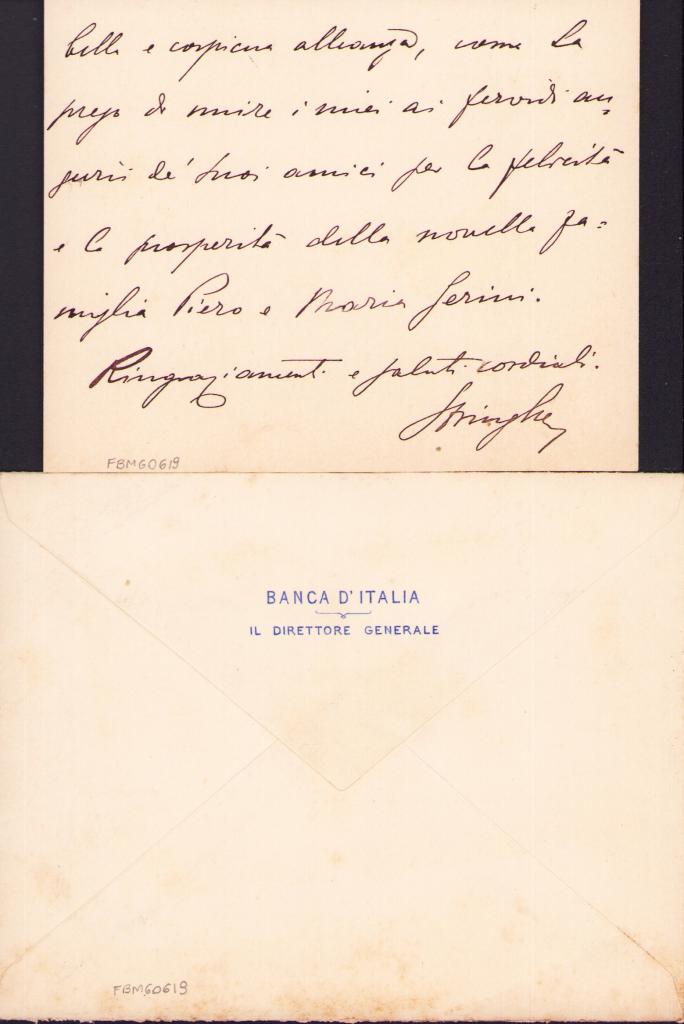 bella e cospicua alleanza, come La
prego di unire i miei ai fervidi au=
gurii de' Suoi amici per la felicità
e la prosperità della novella fa=
miglia Piero e Maria Gerini.
Ringraziamenti e saluti cordiali.
Stringher
FBMG0619
BANCA D'ITALIA
IL DIRETTORE GENERALE
FBMG0619